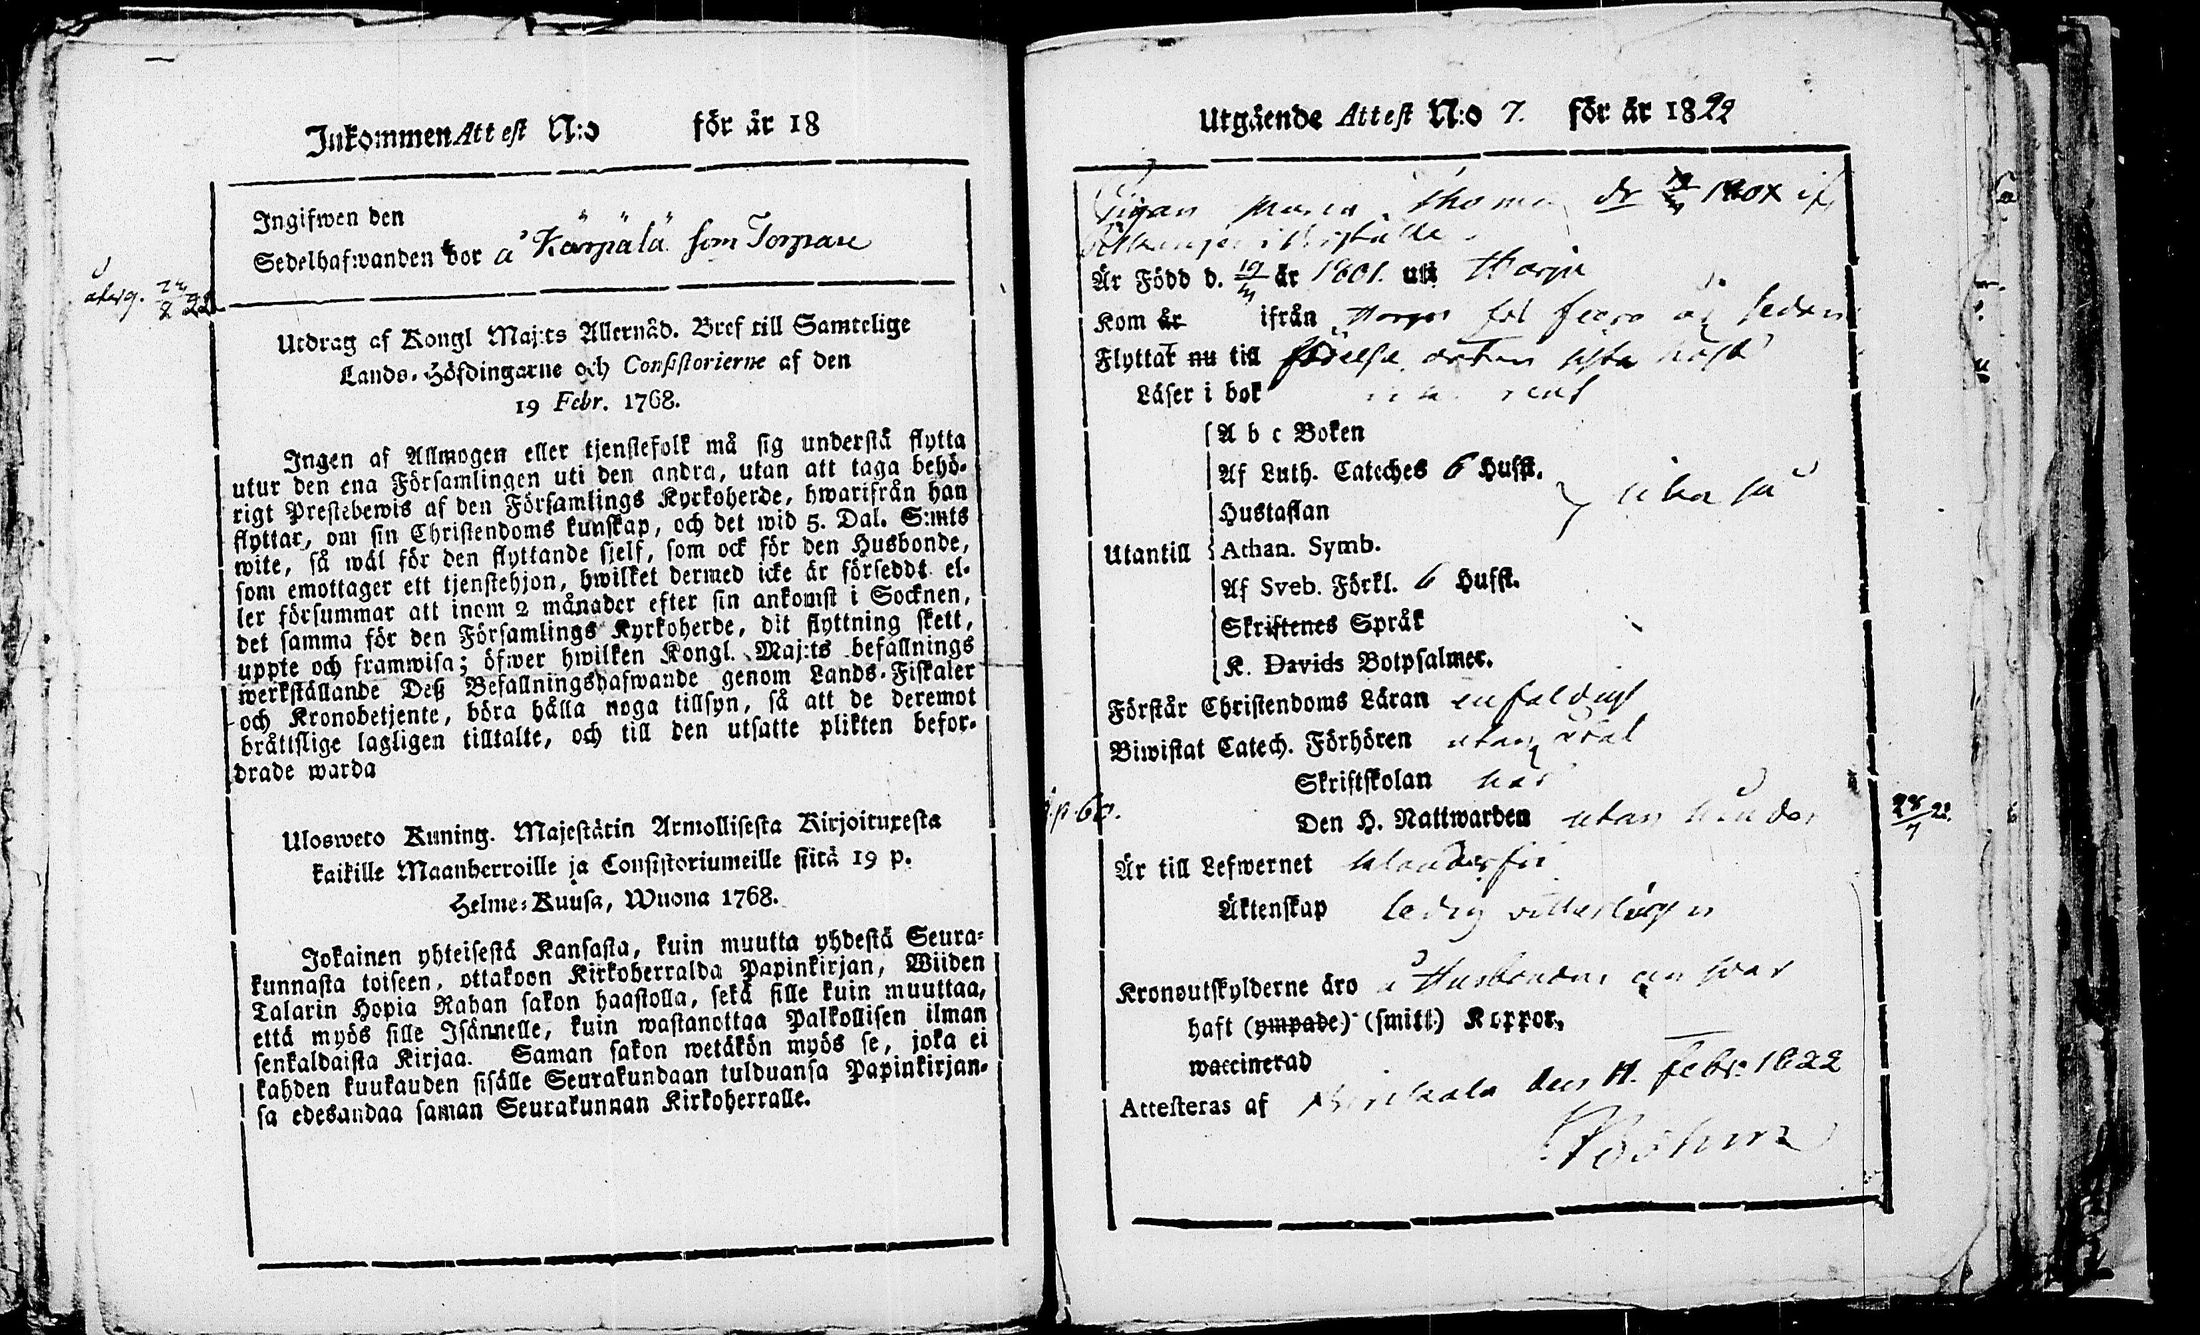 Inkommen Attest N:o för år 18
Ingifwen den
Sedelhafwanden bor å Kärpälä som Torpare
Utdrag af Kongl Maj:ts Allernåd. Bref till Samtelige
Lands-Höfdingarne och Consistorierne af den
19 Febr. 1768.
Ingen af Allmogen eller tjenstefolk må sig understå flytta
utur den ena Församlingen uti den andra, utan att taga behö-
rigt Prestebewis af den Församlings Kyrkoherde, hwarifrån han
flyttar, om sin Christendoms kunskap, och det wid 5. Dal. S:mts
wite, så wäl för den flyttande sjelf, som ock för den Husbonde,
som emottager ett tjenstehjon, hwilket dermed icke är förseddt el-
ler försummar att inom 2 månader efter sin ankomst i Socknen,
det samma för den Församlings Kyrkoherde, dit flyttning skett,
uppte och framwisa; öfwer hwilken Kongl. Maj:ts befallnings
werkställande Deß Befallningshafwande genom Lands-Fiskaler
och Kronobetjente, böra hålla noga tillsyn, så att de deremot
bråttslige lagligen tilltalte, och till den utsatte plikten befor-
drade warda
Ulosweto Kuning. Majestätin Armollisesta Kirjoituxesta
kaikille Maanherroille ja Consistoriumeille siitä 19 p.
Helme-Kuusa, Wuona 1768.
Jokainen yhteisestä Kansasta, kuin muutta yhdestä Seura-
kunnasta toiseen, ottakoon Kirkoherralda Papinkirjan, Wiiden
Talarin Hopia Rahan sakon haastolla, sekä sille kuin muuttaa,
että myös sille Isännelle, kuin wastanottaa Palkollisen ilman
senkaldaista Kirjaa. Saman sakon wetäkön myös se, joka ei
kahden kuukauden sisälle Seurakundaan tulduansa Papinkirjan-
sa edesandaa saman Seurakunnan Kirkoherralle.
Utgående Attest N:o 7. för år 1822
Pigan Maria Thomæ dr
Är Född d. 19 år 1801. uti
Kom år ifrån
Flyttat nu till
Läser i bok rent
A b c Boken
Af Luth. Cateches 6 Hufst.
Hustaflan lika så
Utantill Athan. Symb.
Af Sveb. Förkl. 6 Hufst.
Skriftenes Språk
K. Davids Botpsalmer.
Förstår Christendoms Läran enfaldigt
Biwistat Catech. Förhören utan
Skriftskolan har
p. 60.
Den H. Nattwarden utan hinder
Är till Lefwernet klanderfri
Äktenskap ledig
Kronoutskylderne äro å Husbondens answar
haft (ympade) (smitt) Koppor,
waccinerad
Attesteras af den 11. Febr. 1822